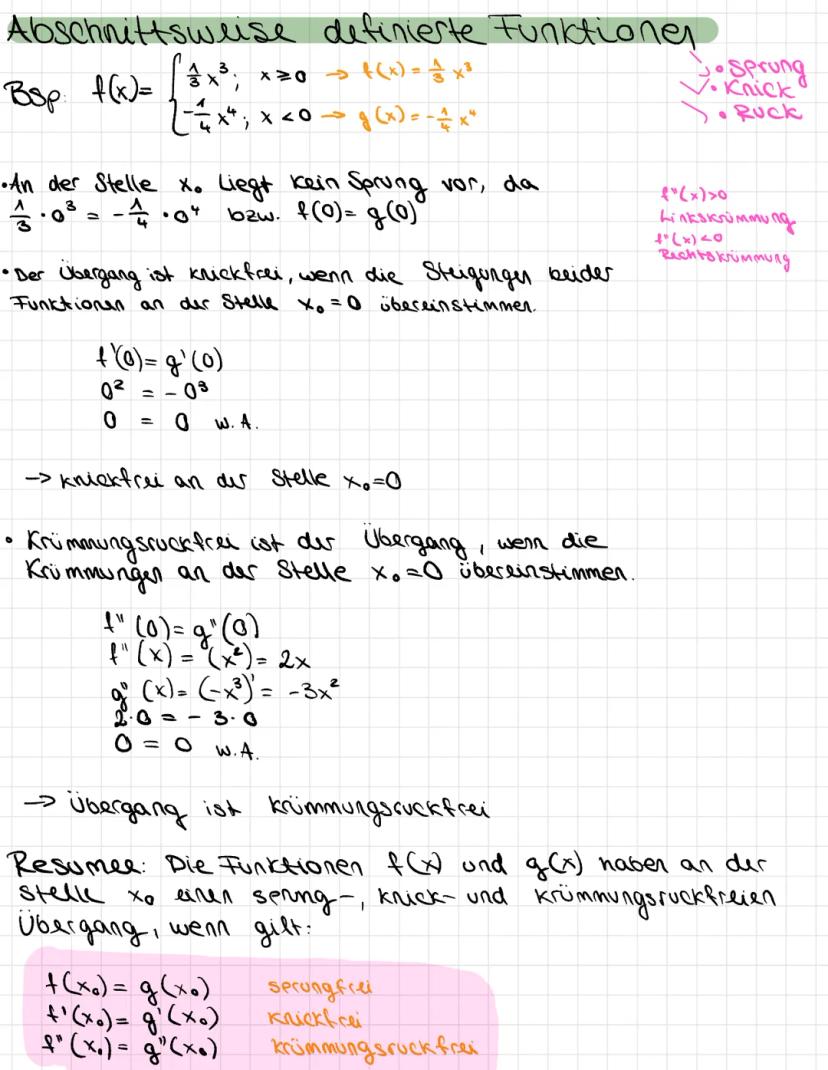 Abschnittsweise definierte Funktionen
Bsp: f(x)= { 1/3 x³; x≥0 → f(x) = 1/3 x³
-1/4 x⁴; x<0 → g(x) = -1/4 x⁴
• Sprung
• Knick
• Ruck
• An der Stelle x₀ liegt kein Sprung vor, da
1/3 · 0³ = -1/4 · 0⁴ bzw. f(0) = g(0)
f''(x)>0
Linkskrümmung
f''(x)<0
Rechtskrümmung
• Der Übergang ist knickfrei, wenn die Steigungen beider
Funktionen an der Stelle x₀ = 0 übereinstimmen.
f'(0) = g'(0)
0² = -0³
0 = 0 w.A.
→ knickfrei an der Stelle x₀=0
• Krümmungsruckfrei ist der Übergang, wenn die
Krümmungen an der Stelle x₀=0 übereinstimmen.
f''(0) = g''(0)
f''(x) = (x²)' = 2x
g''(x) = (-x³)' = -3x²
2·0 = -3·0
0 = 0 w.A.
→ Übergang ist krümmungsruckfrei
Resumee: Die Funktionen f(x) und g(x) haben an der
Stelle x₀ einen sprung-, knick- und krümmungsruckfreien
Übergang, wenn gilt:
f(x₀) = g(x₀) sprungfrei
f'(x₀) = g'(x₀) knickfrei
f''(x₀) = g''(x₀) krümmungsruckfrei